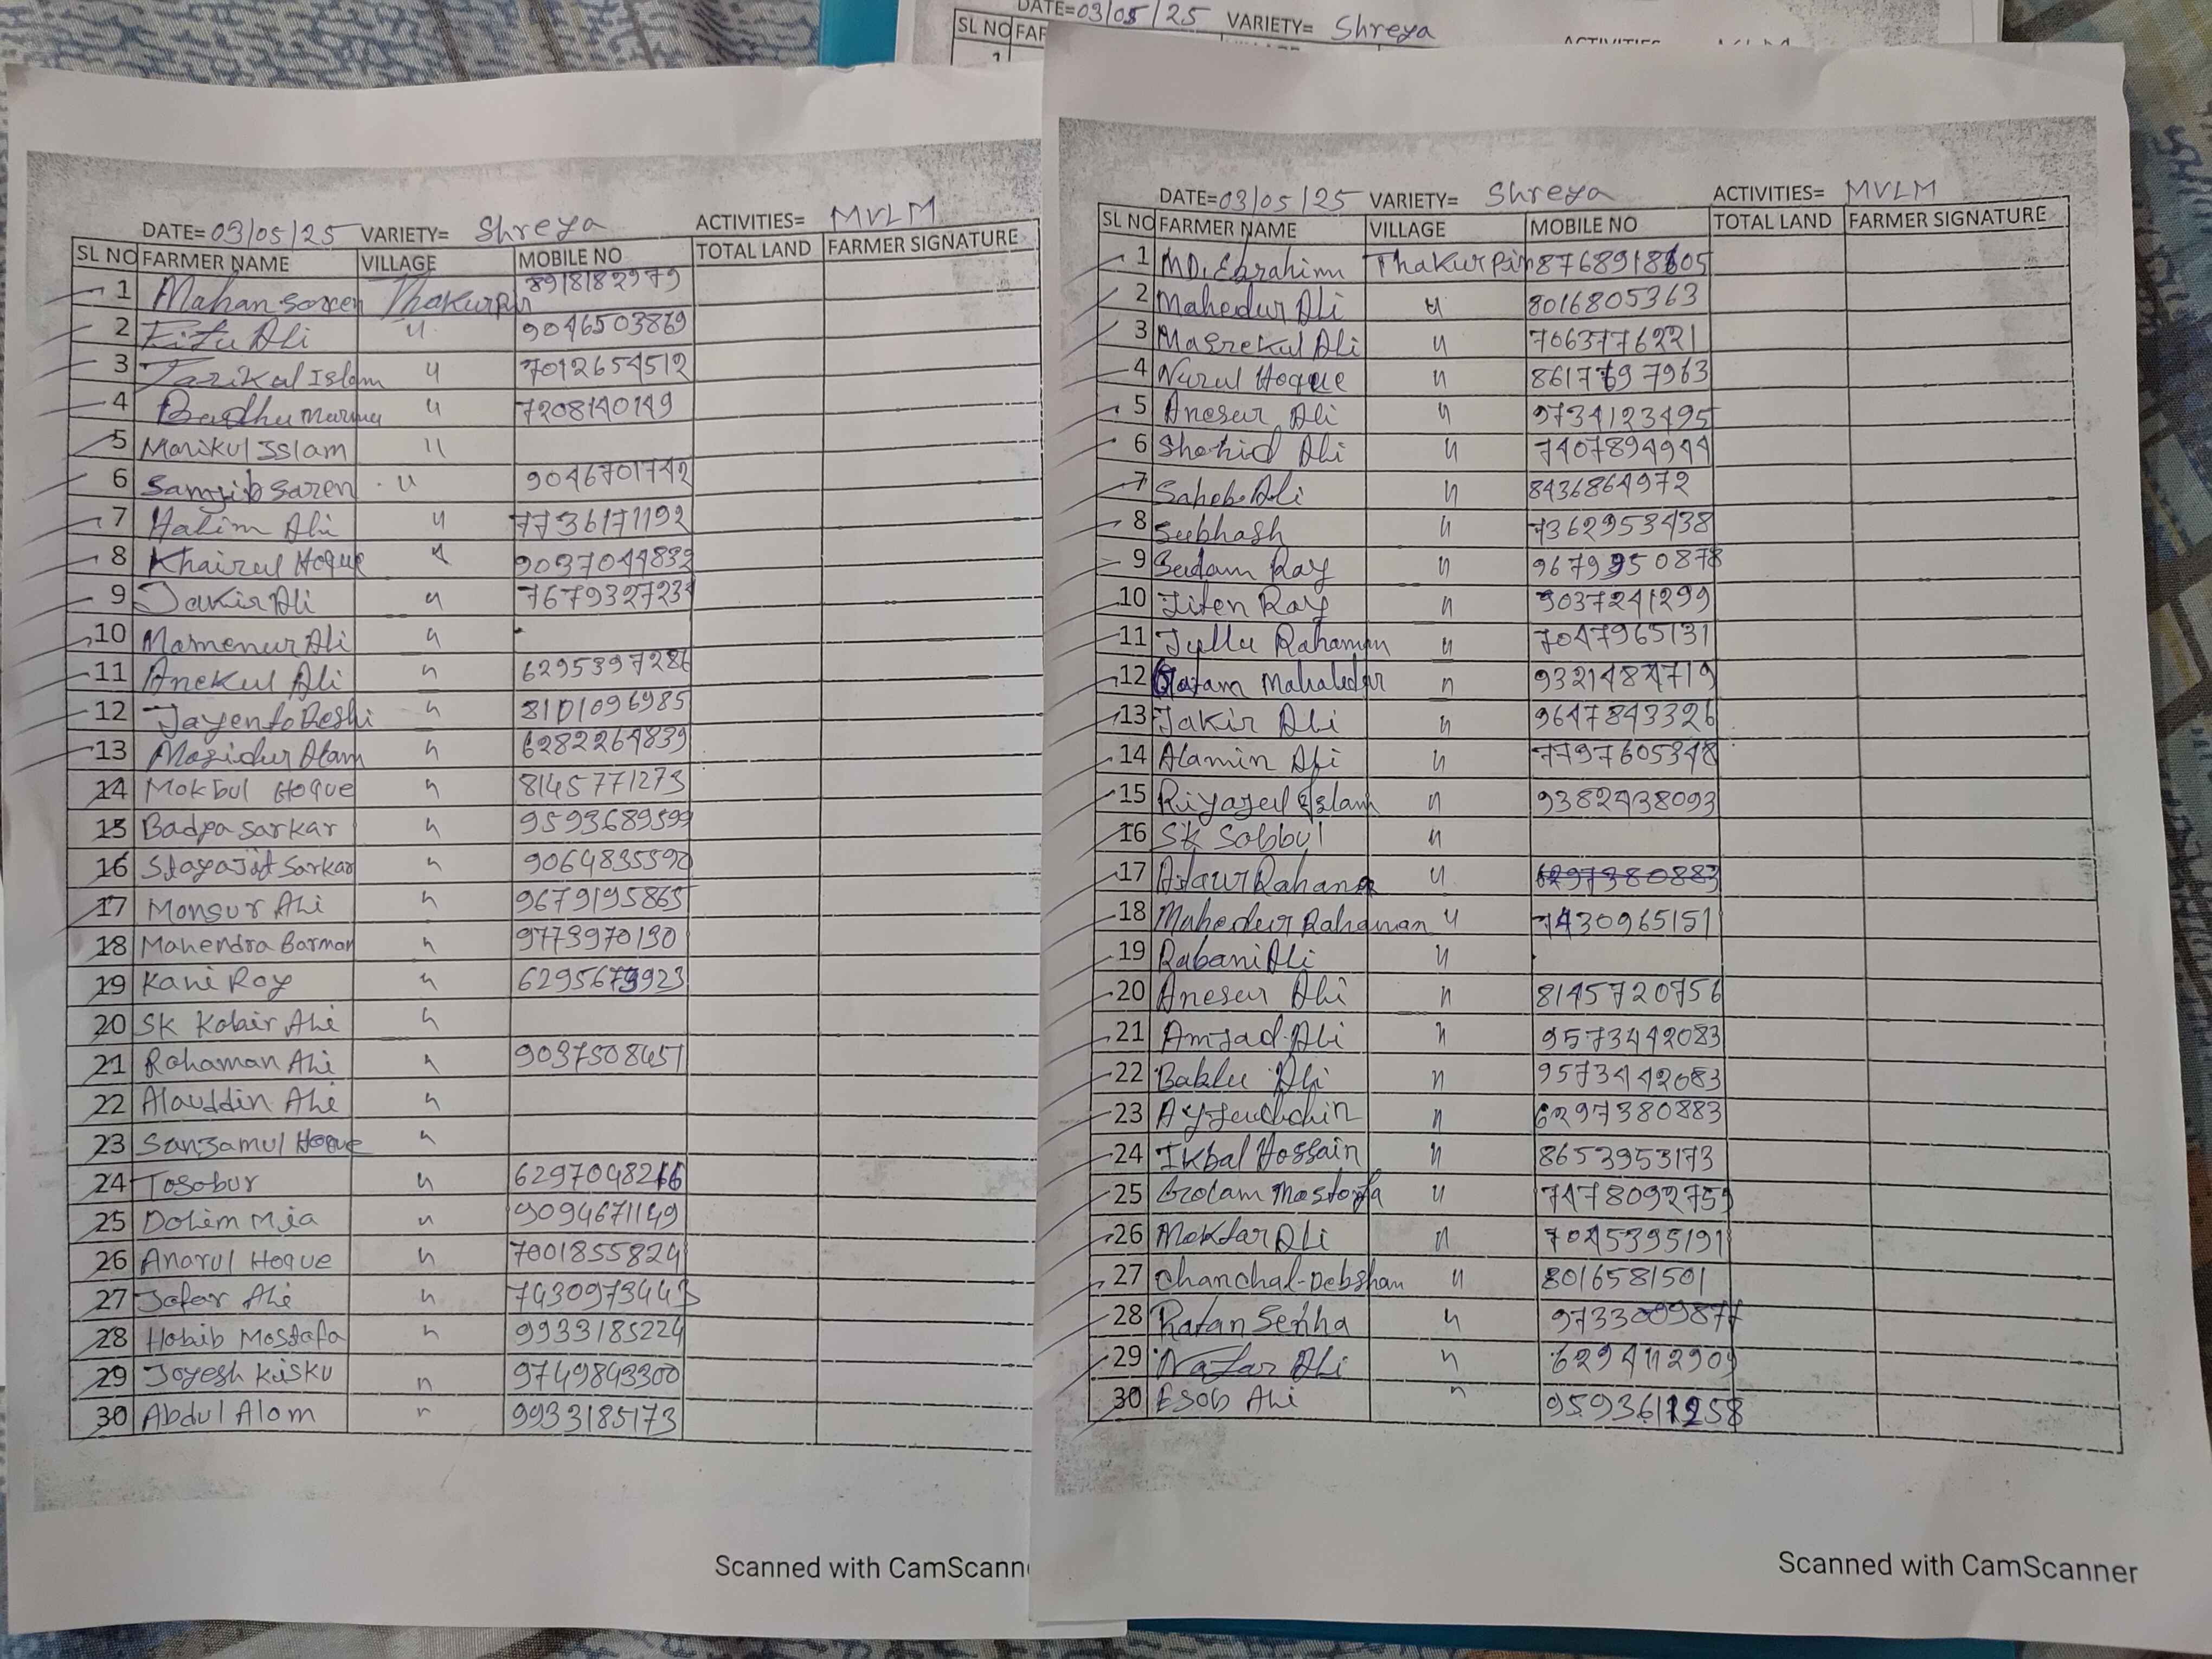 DATE=03/05/25 VARIETY= Shreya
SL NO FAR
1
DATE=03/05/25 VARIETY= Shreya ACTIVITIES= MVLM
SL NO FARMER NAME VILLAGE MOBILE NO TOTAL LAND FARMER SIGNATURE
1 Mahan Soren Thakurpir 8918182979
2 Ali 〃 9046503869
3 Tarikul Islam 〃 7012654512
4 Murmu 〃 7208140149
5 Marikul Islam 〃
6 Samjib Saren 〃 9046701742
7 Halim Ali 〃 7736171192
8 Khairul Hoque 〃 9037044832
9 Jakir Ali 〃 7679327234
10 Mamenur Ali 〃
11 Anekul Ali 〃 6295397286
12 Jayento 〃 8101096985
13 Mosidur Alam 〃 6282264839
14 Mokbul Hoque 〃 8145771273
15 Badpa Sarkar 〃 9593689599
16 Stayajit Sarkar 〃 9064835590
17 Monsur Ali 〃 9679195865
18 Mahendra Barman 〃 9773970130
19 Kani Roy 〃 6295679923
20 SK Kabir Ali 〃
21 Rahaman Ali 〃 9037508451
22 Alauddin Ali 〃
23 Sanzamul Hoque 〃
24 Tosobur 〃 6297048266
25 Dolim Mia 〃 9094671149
26 Anarul Hoque 〃 7001855824
27 Jafar Ali 〃 7430973443
28 Habib Mostafa 〃 9933185224
29 Joyesh Kisku 〃 9749843300
30 Abdul Alom 〃 9933185173
Scanned with CamScann
DATE=03/05/25 VARIETY= Shreya ACTIVITIES= MVLM
SL NO FARMER NAME VILLAGE MOBILE NO TOTAL LAND FARMER SIGNATURE
1 MD. Ebrahim Thakurpir 8768918605
2 Mahedur Ali 〃 8016805363
3 Masrekul Ali 〃 7063776221
4 Nurul Hoque 〃 8617697963
5 Anesur Ali 〃 9734123495
6 Shohid Ali 〃 7407894944
7 Saheb Ali 〃 8436864972
8 Subhash 〃 7362953438
9 Sudam Ray 〃 9679950878
10 Jiten Ray 〃 9037241299
11 Jullu Rahaman 〃 7047965131
12 Gatam Mahaldar 〃 9321484719
13 Jakir Ali 〃 9647843326
14 Alamin Ali 〃 7797605348
15 Riyajul Islam 〃 9382438093
16 SK Sobbul 〃
17 Ataur Rahana 〃 6297380883
18 Mahedur Rahaman 〃 7430965151
19 Rabani Ali 〃
20 Anesur Ali 〃 8145720756
21 Amjad Ali 〃 9573442083
22 Bablu Ali 〃 9573442083
23 〃 6297380883
24 Ikbal Hossain 〃 8653953173
25 Golam Mostofa 〃 7478092759
26 Moktar Ali 〃 7045395191
27 Chanchal-Debshan 〃 8016581501
28 Ratan Senha 〃 9733009877
29 Nafar Ali 〃 6294112909
30 Esob Ali 〃 9593611258
Scanned with CamScanner